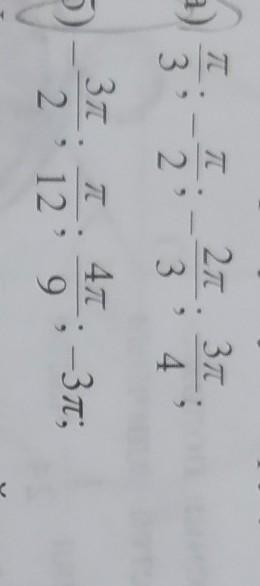 а) π/3; −π/2; −2π/3; 3π/4;
б) −3π/2; π/12; 4π/9; −3π;